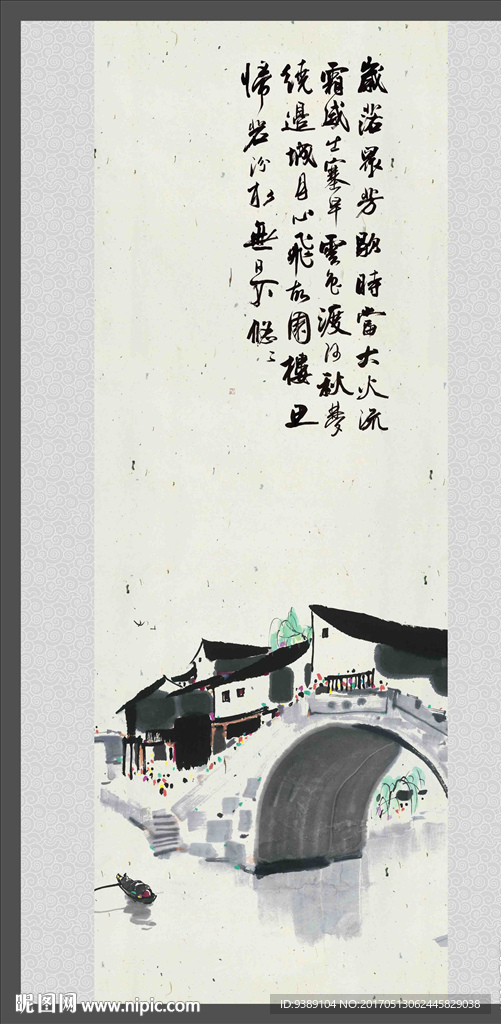 歲落眾芳歇時當大火流
霜威出塞早雲色渡河秋夢
繞邊城月心飛故國樓
歸若汾水無日不悠々
昵图网 www.nipic.com
ID:9389104 NO:20170513062445829038